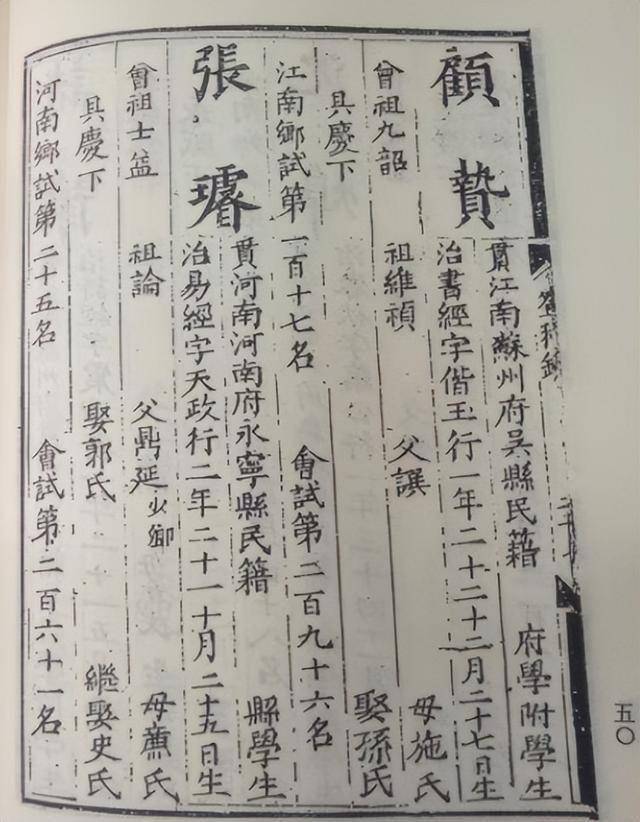 登科錄
顧贄
貫江南蘇州府吳縣民籍 府學附學生
治書經字偕玉行一年二十二十二月二十七日生
曾祖九韶 祖維禎 父譔 母施氏
具慶下 娶孫氏
江南鄉試第一百十七名 會試第二百九十六名
張璿
貫河南河南府永寧縣民籍 縣學生
治易經字天政行二年二十一十月二十五日生
曾祖士益 祖論 父鼎延 少卿 母薰氏
具慶下 娶郭氏 繼娶史氏
河南鄉試第二十五名 會試第二百六十一名
五〇